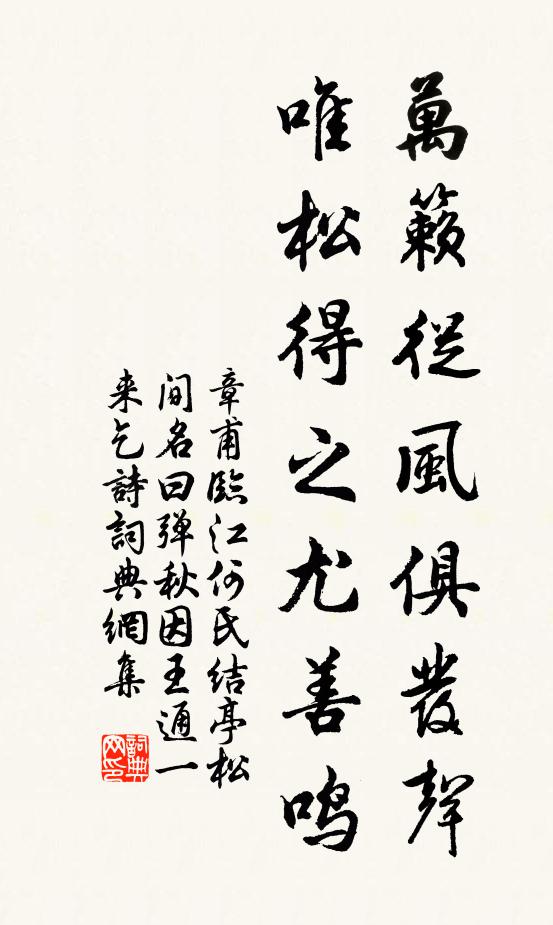 萬籟從風俱發聲
唯松得之尤善鳴
章甫臨江何氏结亭松
间名曰弹秋因王通一
来乞詩詞典網集
詞典网印